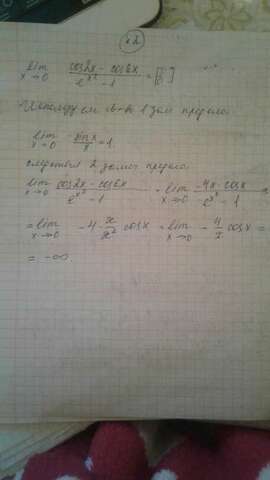 №2
lim x→0 cos2x - cos6x / e^x² - 1 = [0/0]
Используем 1 зам предела
lim x→0 sin x / x = 1
следствия 2 замеч предела
lim x→0 cos2x - cos6x / e^x² - 1 = lim x→0 -4x · cosx / e^x² - 1 =
= lim x→0 -4 · x/x² cosx = lim x→0 - 4/x cosx =
= -∞